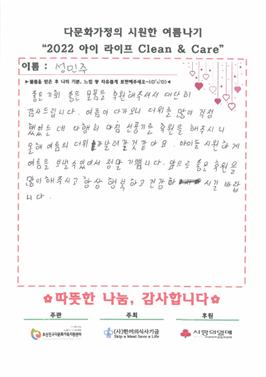 다문화가정의 시원한 여름나기
"2022 아이 라이프 Clean & Care"
이름 : 성민주
좋은 기회 좋은 물품을 후원해주셔서 대단히
감사드립니다. 여름이 다가오니 더위를 많이 걱정
했었는데 다행히 마침 선풍기를 후원을 해주시니
올해 여름의 더위 날 것 같아요. 아이들 시원하게
여름을 보낼 수 있어서 정말 기쁩니다. 앞으로 좋은 후원을
많이 해주시고 항상 행복하고 건강하 시길 바랍
니다.
따뜻한 나눔, 감사합니다
주관
주최
후원
(사)한끼의식사기금
Skip a Meal Save a Life
사랑의열매